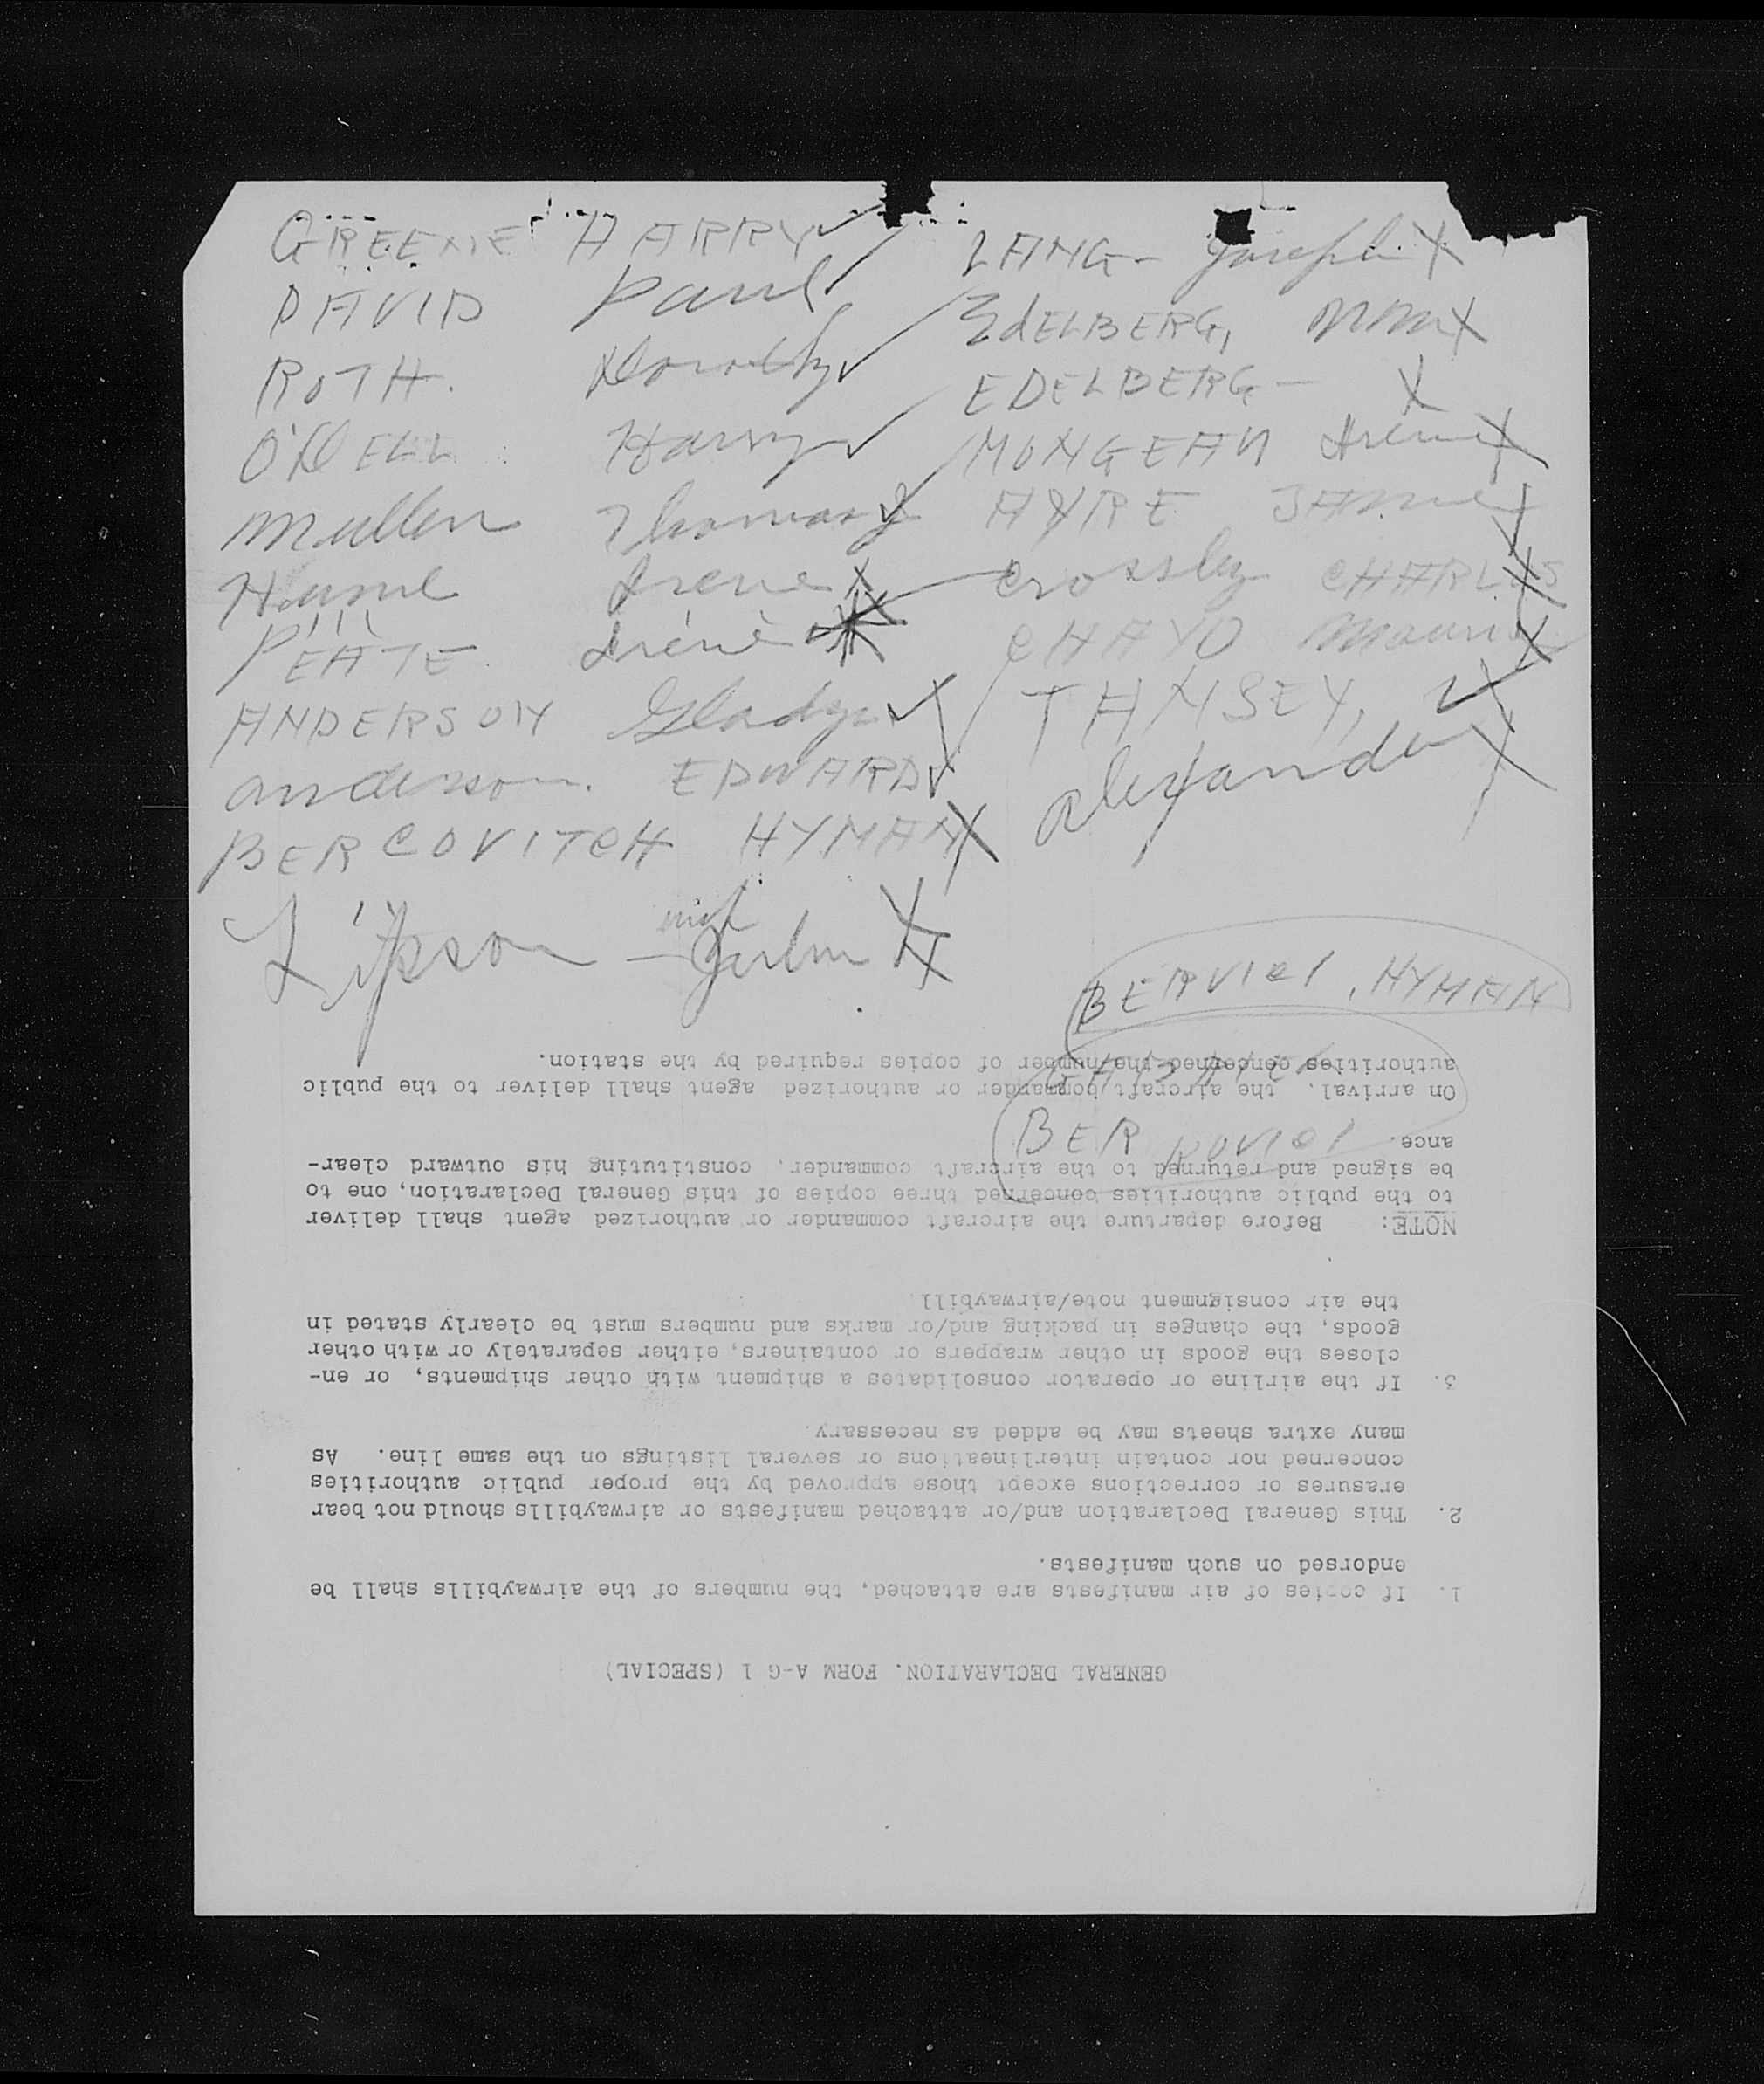 GREENE HARRY
DAVID Paul
ROTH. Dorothy
O'DELL Harry
Mullen Thomas J
Hume Irene
PEATE Irene
ANDERSON Gladys
anderson. EDWARD
BERCOVITCH HYMAN
Lipson - Julm
LANG - Joseph
EdELBERG, MM
EDELBERG -
MONGEAU Irene
AYRE JAMME
Crossley CHARLES
CHAYO Mauris
TAMSEY,
Alexander
BERVICI, HYMAN
BER KOVICI
GENERAL DECLARATION. FORM A-G 1 (SPECIAL)
1. If copies of air manifests are attached, the numbers of the airwaybills shall be
endorsed on such manifests.
2. This General Declaration and/or attached manifests or airwaybills should not bear
erasures or corrections except those approved by the proper public authorities
concerned nor contain interlineations or several listings on the same line. As
many extra sheets may be added as necessary.
3. If the airline or operator consolidates a shipment with other shipments, or en-
closes the goods in other wrappers or containers, either separately or with other
goods, the changes in packing and/or marks and numbers must be clearly stated in
the air consignment note/airwaybill
NOTE: Before departure the aircraft commander or authorized agent shall deliver
to the public authorities concerned three copies of this General Declaration, one to
be signed and returned to the aircraft commander, constituting his outward clear-
ance.
On arrival, the aircraft commander or authorized agent shall deliver to the public
authorities concerned the number of copies required by the station.